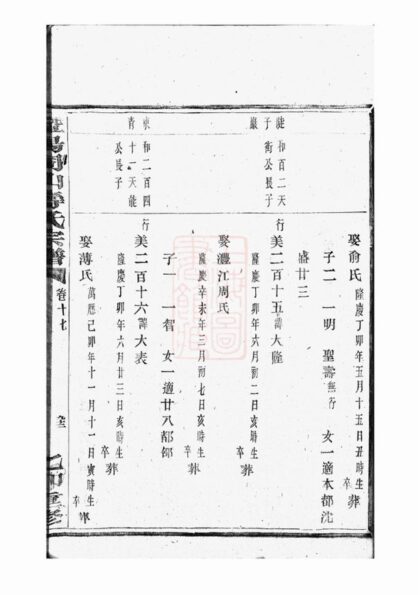 娶俞氏 隆慶丁卯年五月十五日丑時生 卒 葬
子二 一明 聖壽無行 女一適本都沈
盛廿三
璇和百二天
子衡公長子
嚴
行美二百十五諱大隆
隆慶丁卯年六月初二日亥時生 卒 葬
娶灃江周氏
隆慶辛未年三月初七日亥時生 卒 葬
子一 一智 女一適廿八都鄒
和二百四
青十一天能
公長子
行美二百十六諱大表
隆慶丁卯年六月廿三日亥時生 卒 葬
娶薄氏 萬曆己卯年十一月十一日寅時生 卒
氏宗譜
卷十七